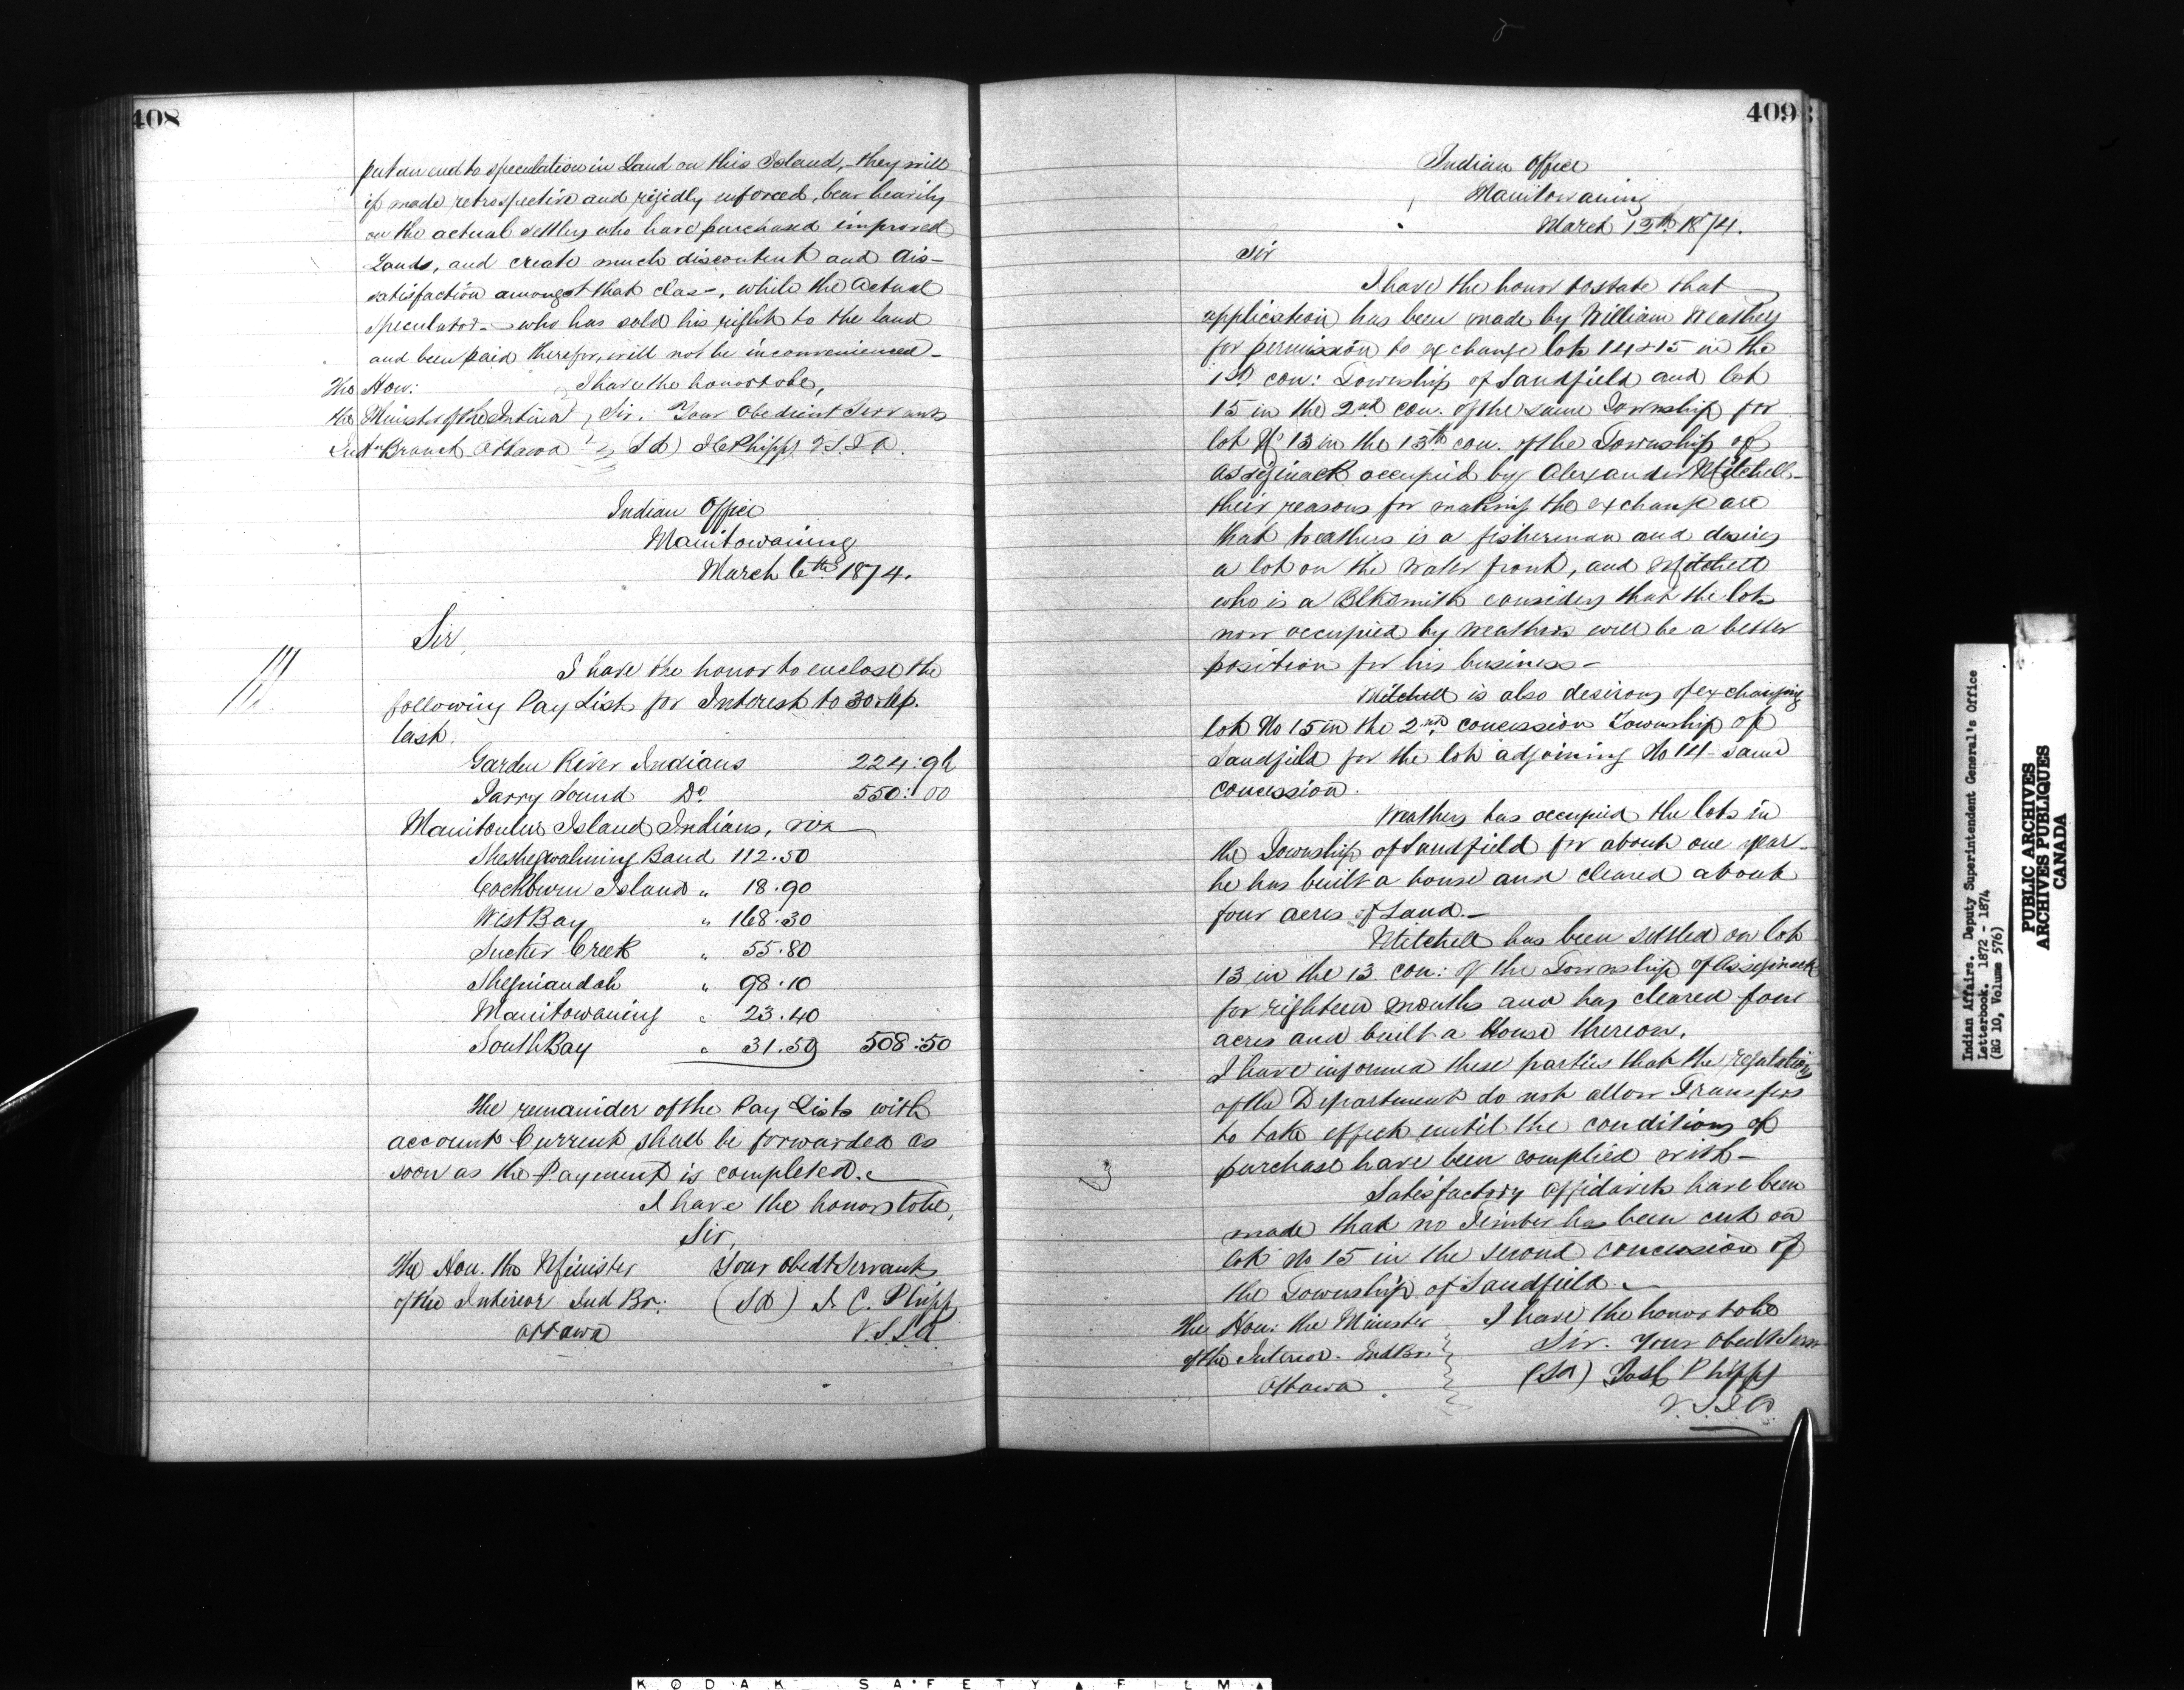 408
put an end to speculation in Land on this Island, - they will
if made retrospective and rigidly enforced, bear heavily
on the actual settlers who have purchased improved
Lands, and create much discontent and dis-
satisfaction amongst that class, while the actual
speculator - who has sold his right to the land
and been paid therefor, will not be inconvenienced -
The Hon: I have the honor to be,
the Minister of the Interior Sir. Your Obedient Servant
Indn Branch Ottawa Sd) J C Phipps V.S.I.A.
Indian Office
Manitowaning
March 6th 1874.
Sir,
I have the honor to enclose the
following Pay List for Interest to 30 Sep.
last.
Garden River Indians 224:96
Parry Sound Do 550:00
Manitoulin Island Indians, viz
Sheshegwahning Band 112.50
Cockburn Island " 18.90
West Bay " 168.30
Sucker Creek " 55.80
Sheguiandah " 98.10
Manitowaning " 23.40
South Bay " 31.50 508:50
The remainder of the Pay Lists with
account Current shall be forwarded as
soon as the Payment is completed.
I have the honor to be,
Sir,
The Hon. the Minister Your Obedt Servant
of the Interior Ind Br: (Sd) J. C. Phipps
Ottawa V.S.I.A
409
Indian Office
Manitowaning
March 12th 1874.
Sir
I have the honor to state that
application has been made by William Weathers
for permission to exchange lots 14 & 15 in the
1st con: Township of Sandfield and lot
15 in the 2nd con. of the same Township for
lot No 13 in the 13th con. of the Township of
Assiginack occupied by Alexander Mitchell -
their reasons for making the exchange are
that Weathers is a fisherman and desires
a lot on the water front, and Mitchell
who is a Blksmith considers that the lots
now occupied by Weathers will be a better
position for his business -
Mitchell is also desirous of exchanging
lot No 15 in the 2nd concession Township of
Sandfield for the lot adjoining No 14 - same
concession.
Weathers has occupied the lots in
the Township of Sandfield for about one year -
he has built a house and cleared about
four acres of Land. -
Mitchell has been settled on lot
13 in the 13. con: of the Township of Assiginack
for eighteen months and has cleared four
acres and built a House thereon.
I have informed these parties that the regulations
of the Department do not allow Transfers
to take effect until the conditions of
purchase have been complied with -
Satisfactory Affidavits have been
made that no Timber has been cut on
lot No 15 in the second concession of
the Township of Sandfield. -
The Hon: the Minister I have the honor to be
of the Interior. Ind Br. Sir. Your Obedt Serv
Ottawa (Sd) Phipps
V.S.I.A.
Indian Affairs. Deputy Superintendent General's Office
Letterbook. 1872 - 1874
(RG 10, Volume 576)
PUBLIC ARCHIVES
ARCHIVES PUBLIQUES
CANADA
KODAK SAFETY FILM